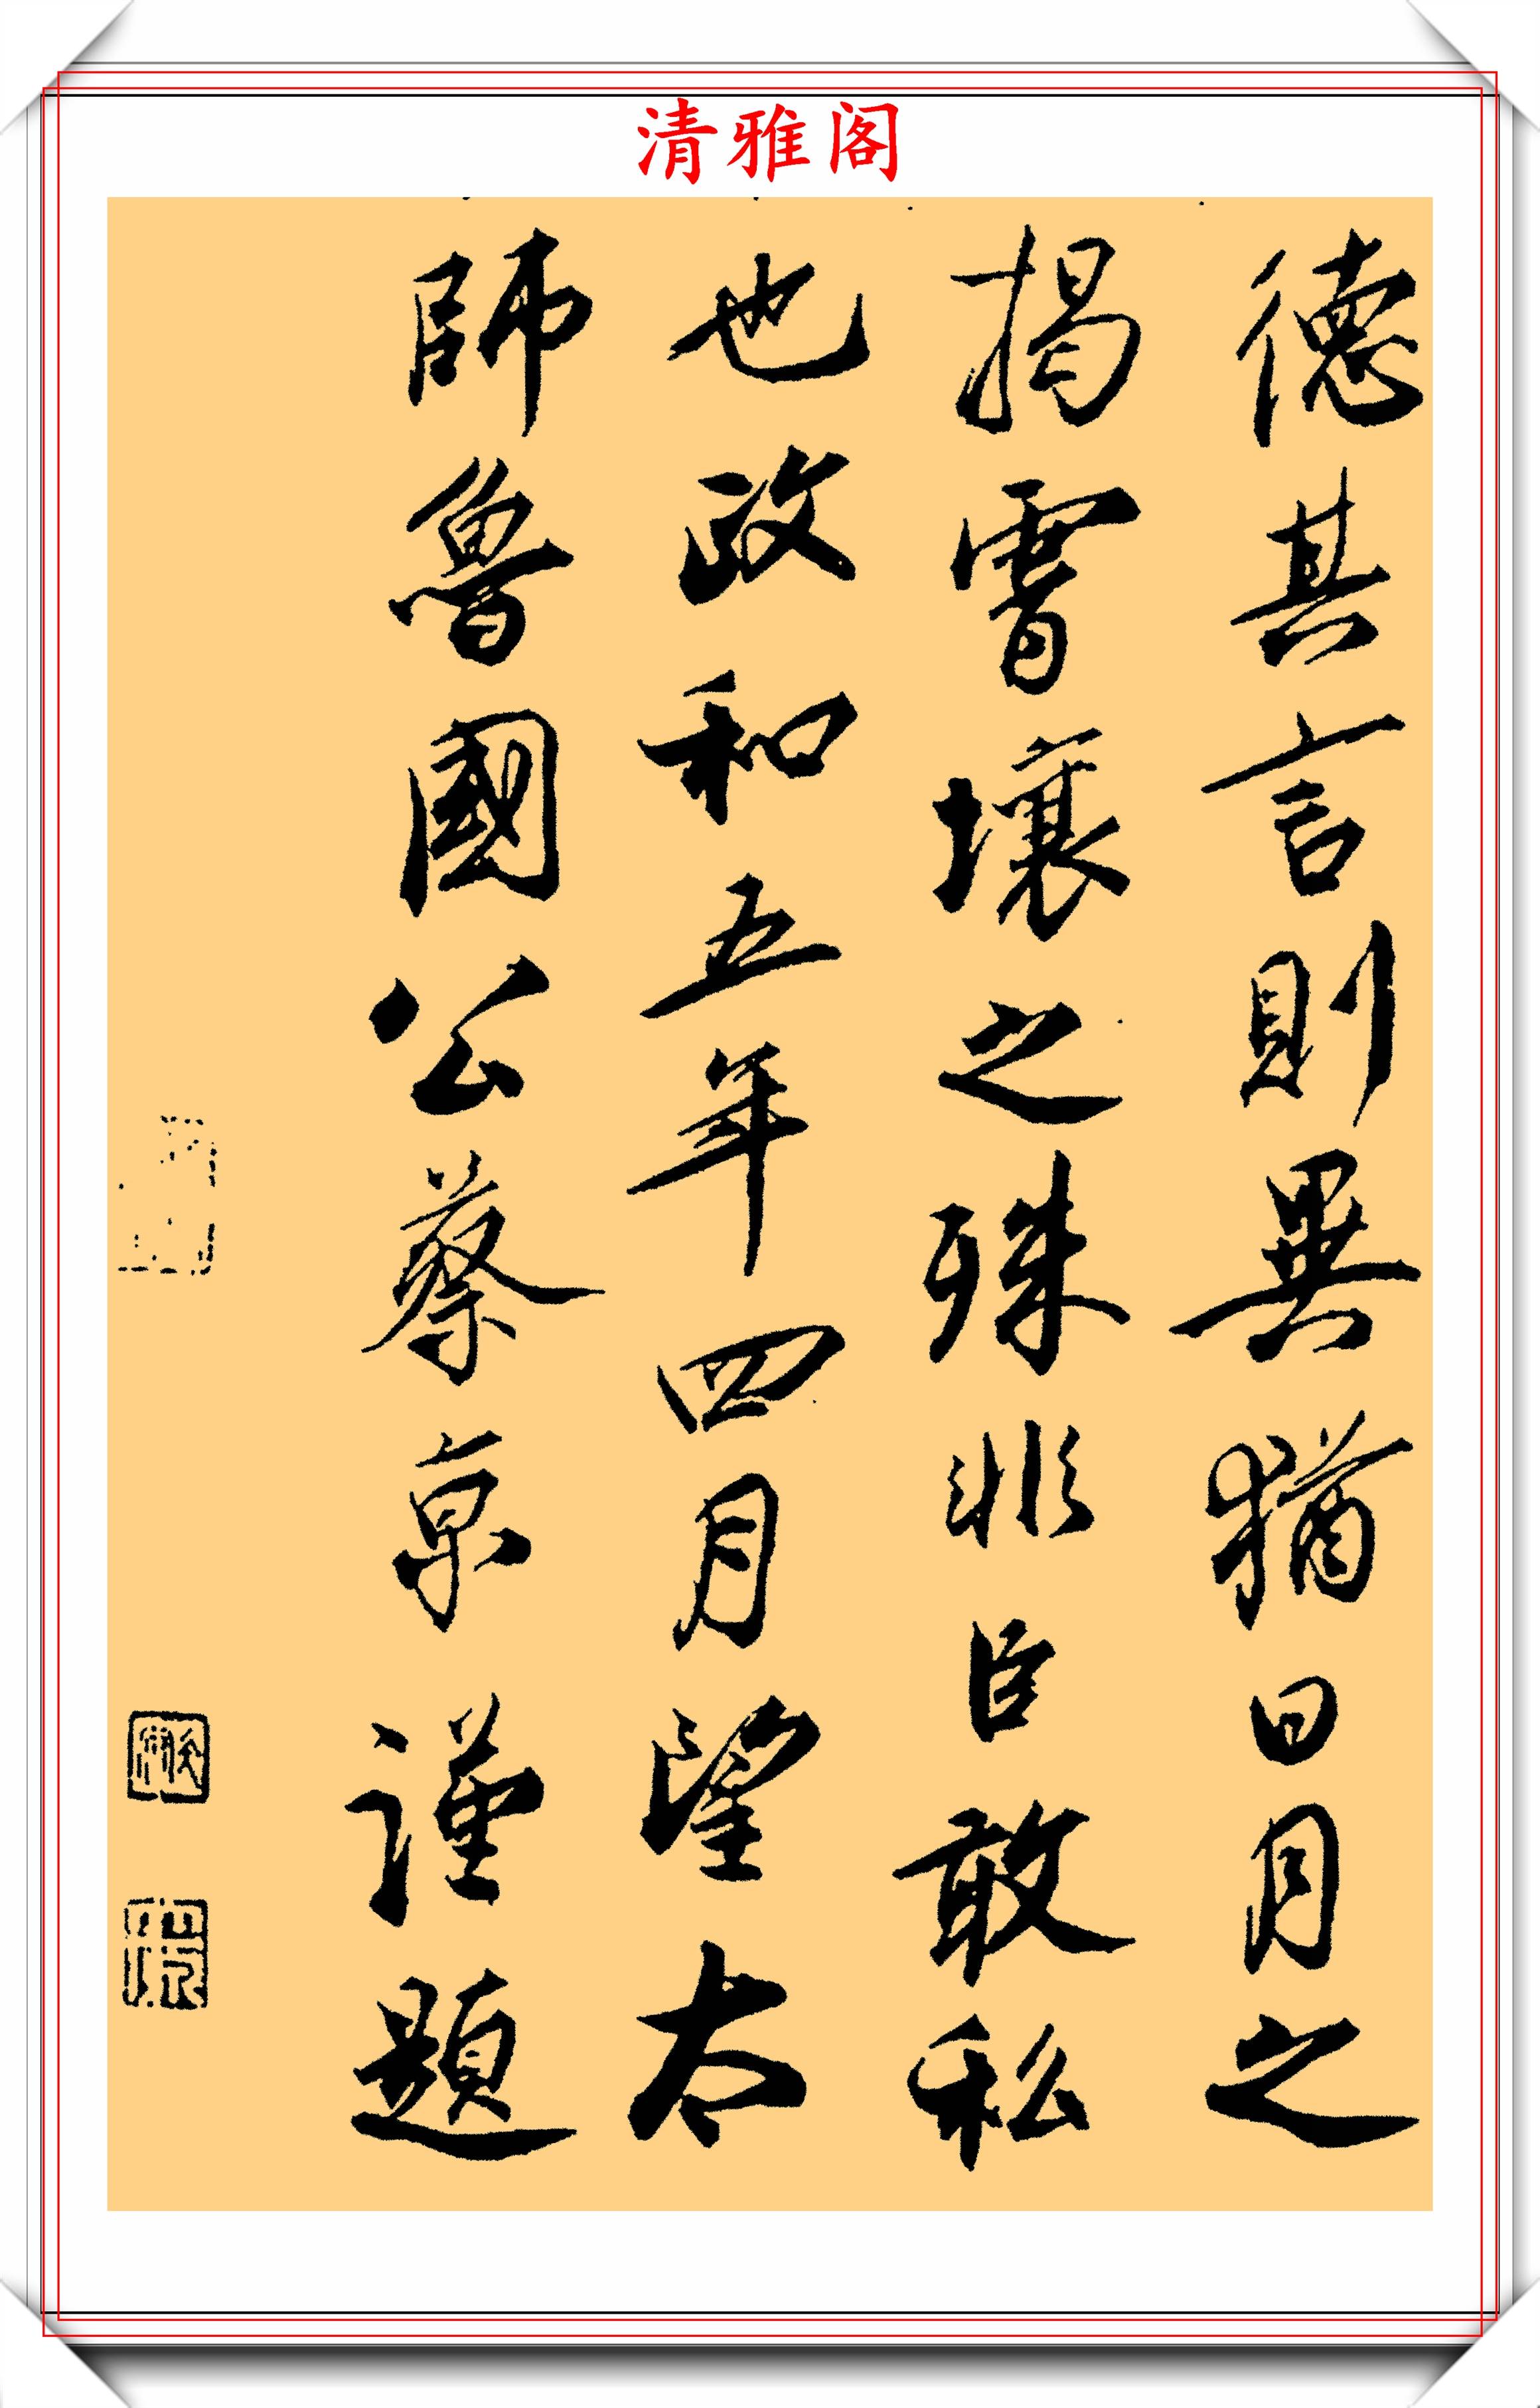 清雅阁
德其言則異猶日月之
揭霄壤之殊非臣敢私
也政和五年四月望太
師魯國公蔡京謹題